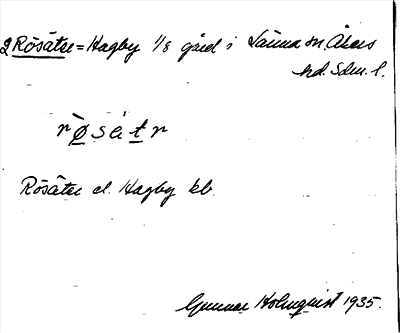 2 Rösätse = Hagby 1/8 gård i Länna sn. Åkers
hd. Sdm. l.
rø̀sétr
Rösätse el. Hagby kb.
Gunnar Holmquist 1935.